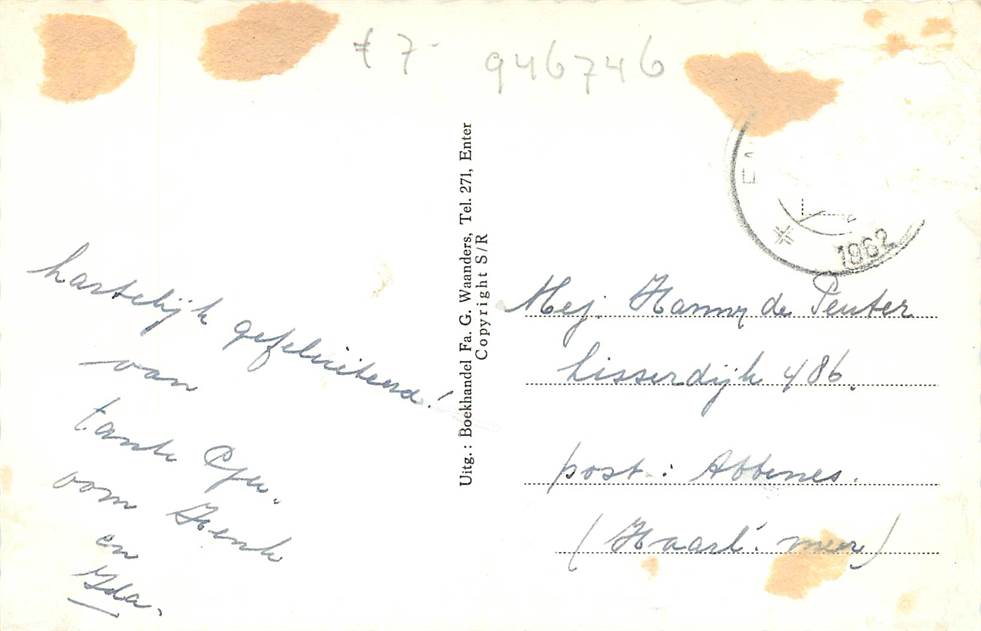 ₤ 7-
946746
1962
hartelijk gefeliciteerd!
van
tante
oom Henk
en
Ida.
Uitg.: Boekhandel Fa. G. Waanders, Tel. 271, Enter
Copyright S/R
Mej. Hanny de Peuter
Lisserdijk 486.
post: Abbenes.
(Haarl. meer)